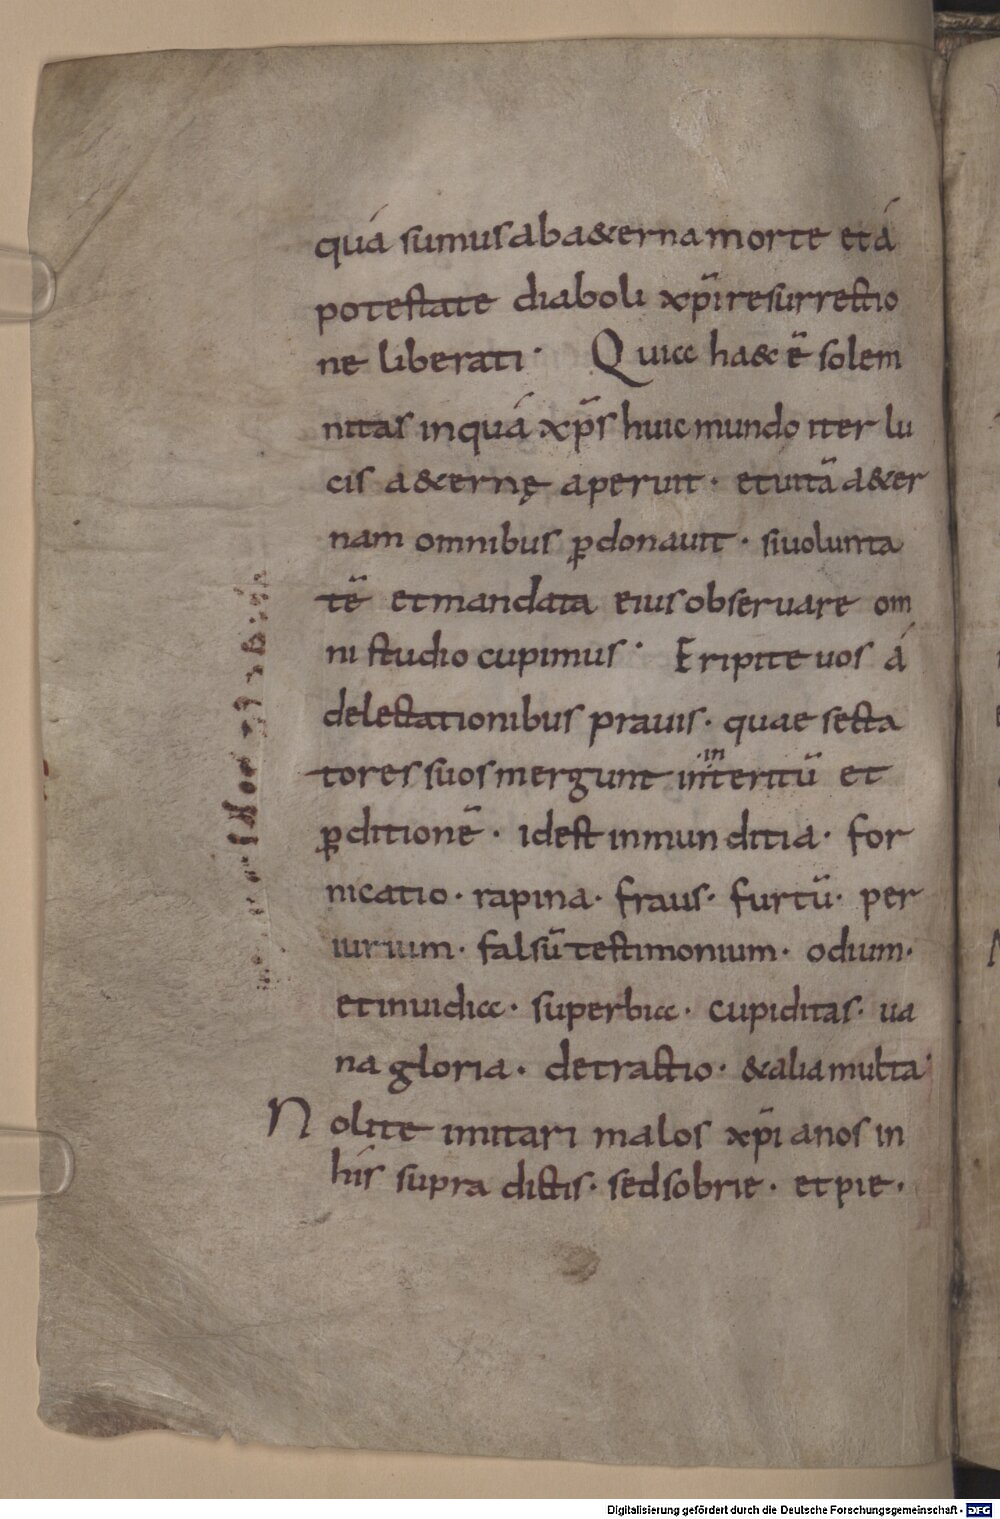 quá sumus ab a&erna morte et á
potestate diaboli xp̄i resurrectio
ne liberati · Quia ha& ē solem
nitas in quá xp̄s huic mundo iter lu
cis a&ernę aperuit · et uitā a&er
nam omnibus p̱donauit · si uolunta
tē et mandata eius obseruare om
ni studio cupimus · Eripite uos á
delectationibus prauis · quae secta
tores suos mergunt in interitū et
p̱ditionē · id est inmunditia · for
nicatio · rapina · fraus · furtū · per
iurium · falsū testimonium · odium ·
et inuidia · superbia · cupiditas · ua
na gloria · detractio · & alia multa ·
Nolite imitari malos xp̄ianos in
his supra dictis · sed sobrie · et pie ·
Digitalisierung gefördert durch die Deutsche Forschungsgemeinschaft - DFG